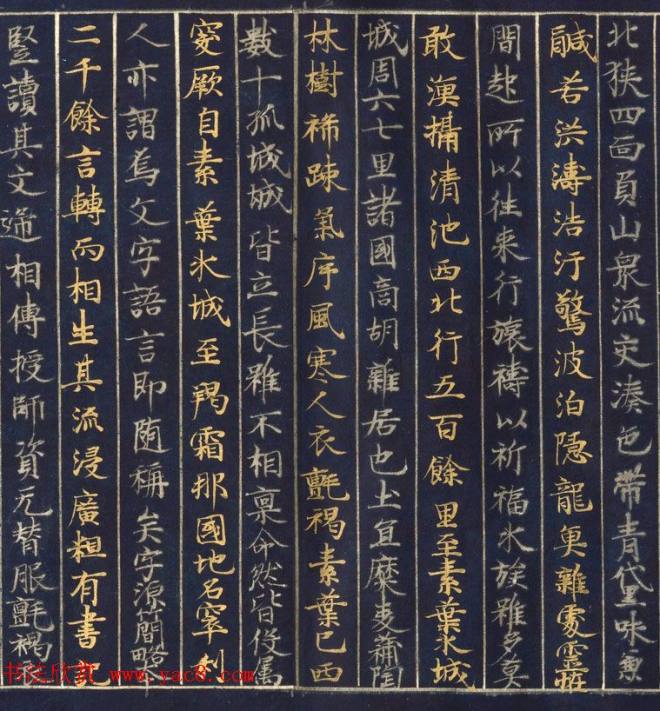 北狹四面負山衆流交湊色帶青黑味兼
鹹苦洪濤浩汗驚波泊隱龍魚雜處靈恠
間起所以往來行旅禱以祈福水族雖多莫
敢漁捕清池西北行五百餘里至素葉水城
城周六七里諸國商胡雜居也土宜糜麦蒲陶
林樹稀疎氣序風寒人衣氎褐素葉已西
數十孤城城皆立長雖不相禀命然皆役属
突厥自素葉水城至羯霜那國地名窣利
人亦謂焉文字語言即随稱矣字源簡略本
二千餘言轉而相生其流浸廣粗有書記
竪讀其文遞相傳授師資无替服氎褐
书法欣赏 www.yac8.com